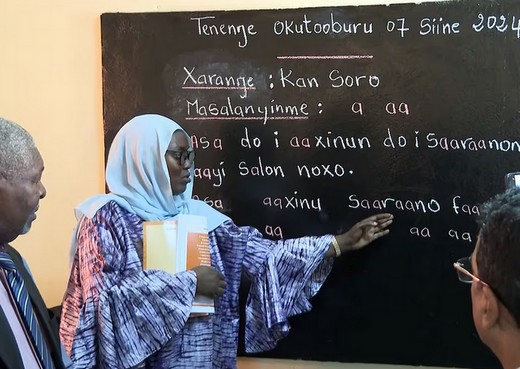 Tenenge Okutooburu 07 Siine 2024
Xarange : Kan Soro
Masalanyinme : a aa
Asa do i aaxinun do i saaraanon
aayi salon noxo.
Asa aaxinu saaraano faa
aa aa aa